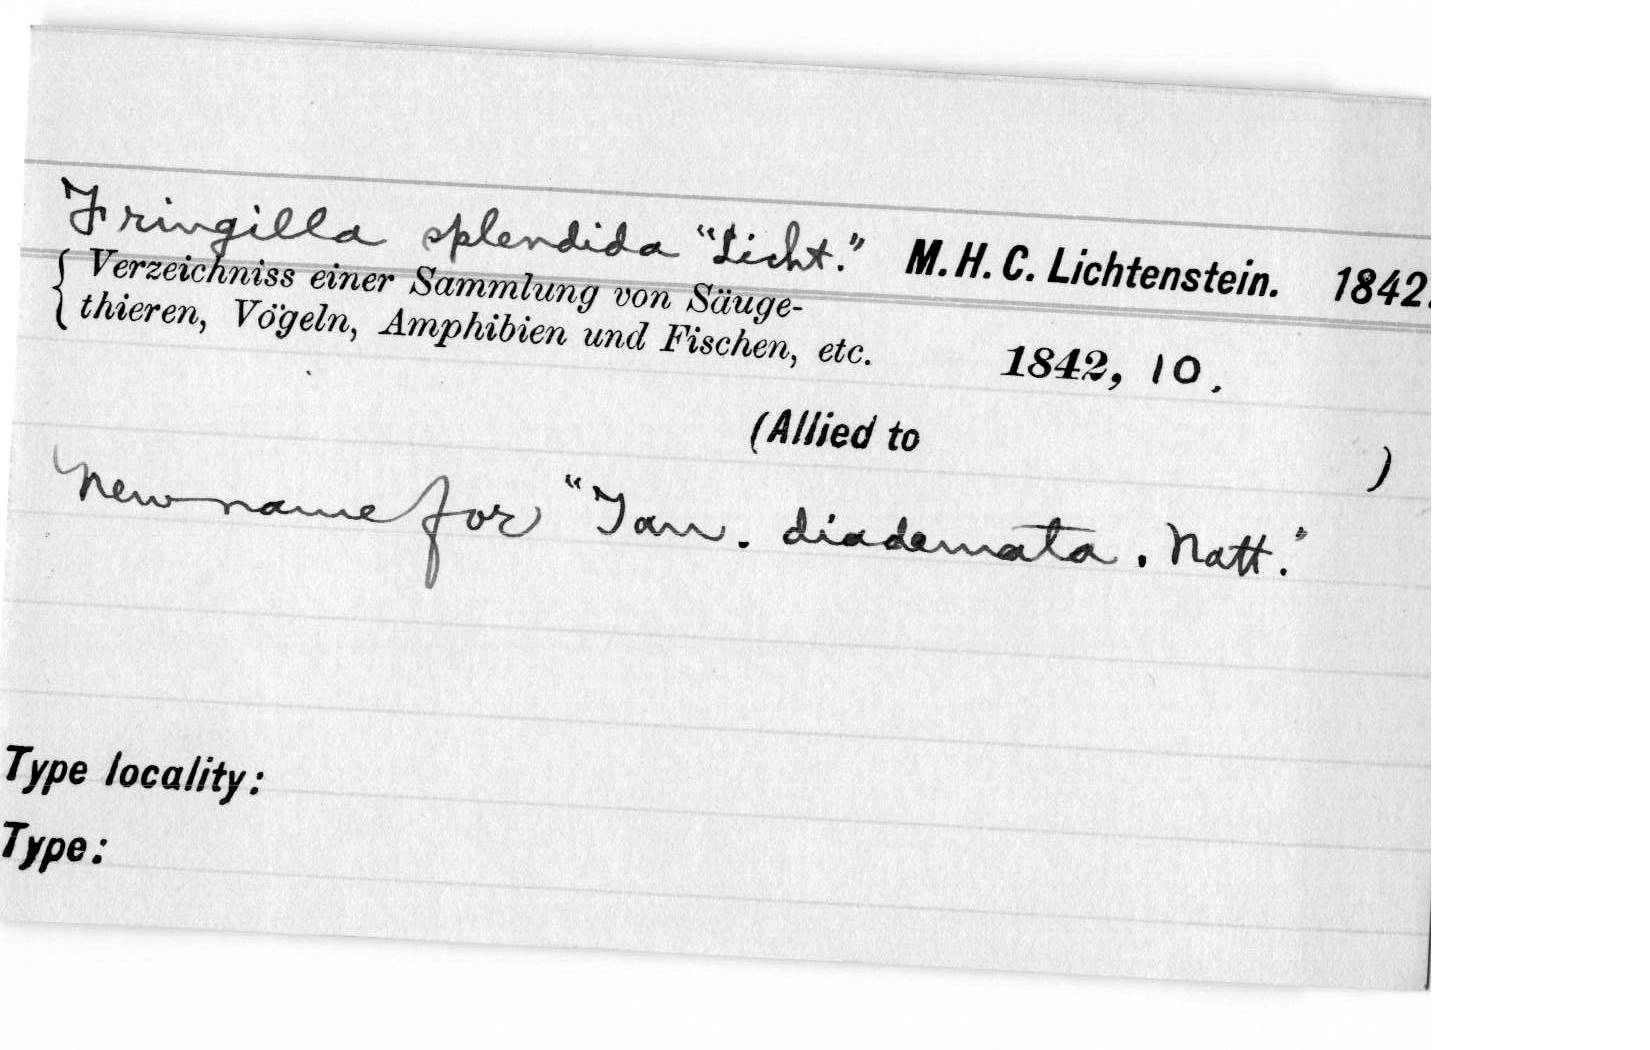 Fringilla splendida "Licht." M. H. C. Lichtenstein. 1842.
Verzeichniss einer Sammlung von Säuge-
thieren, Vögeln, Amphibien und Fischen, etc. 1842, 10.
(Allied to )
New name for "Tan. diademata. Natt."
Type locality:
Type: